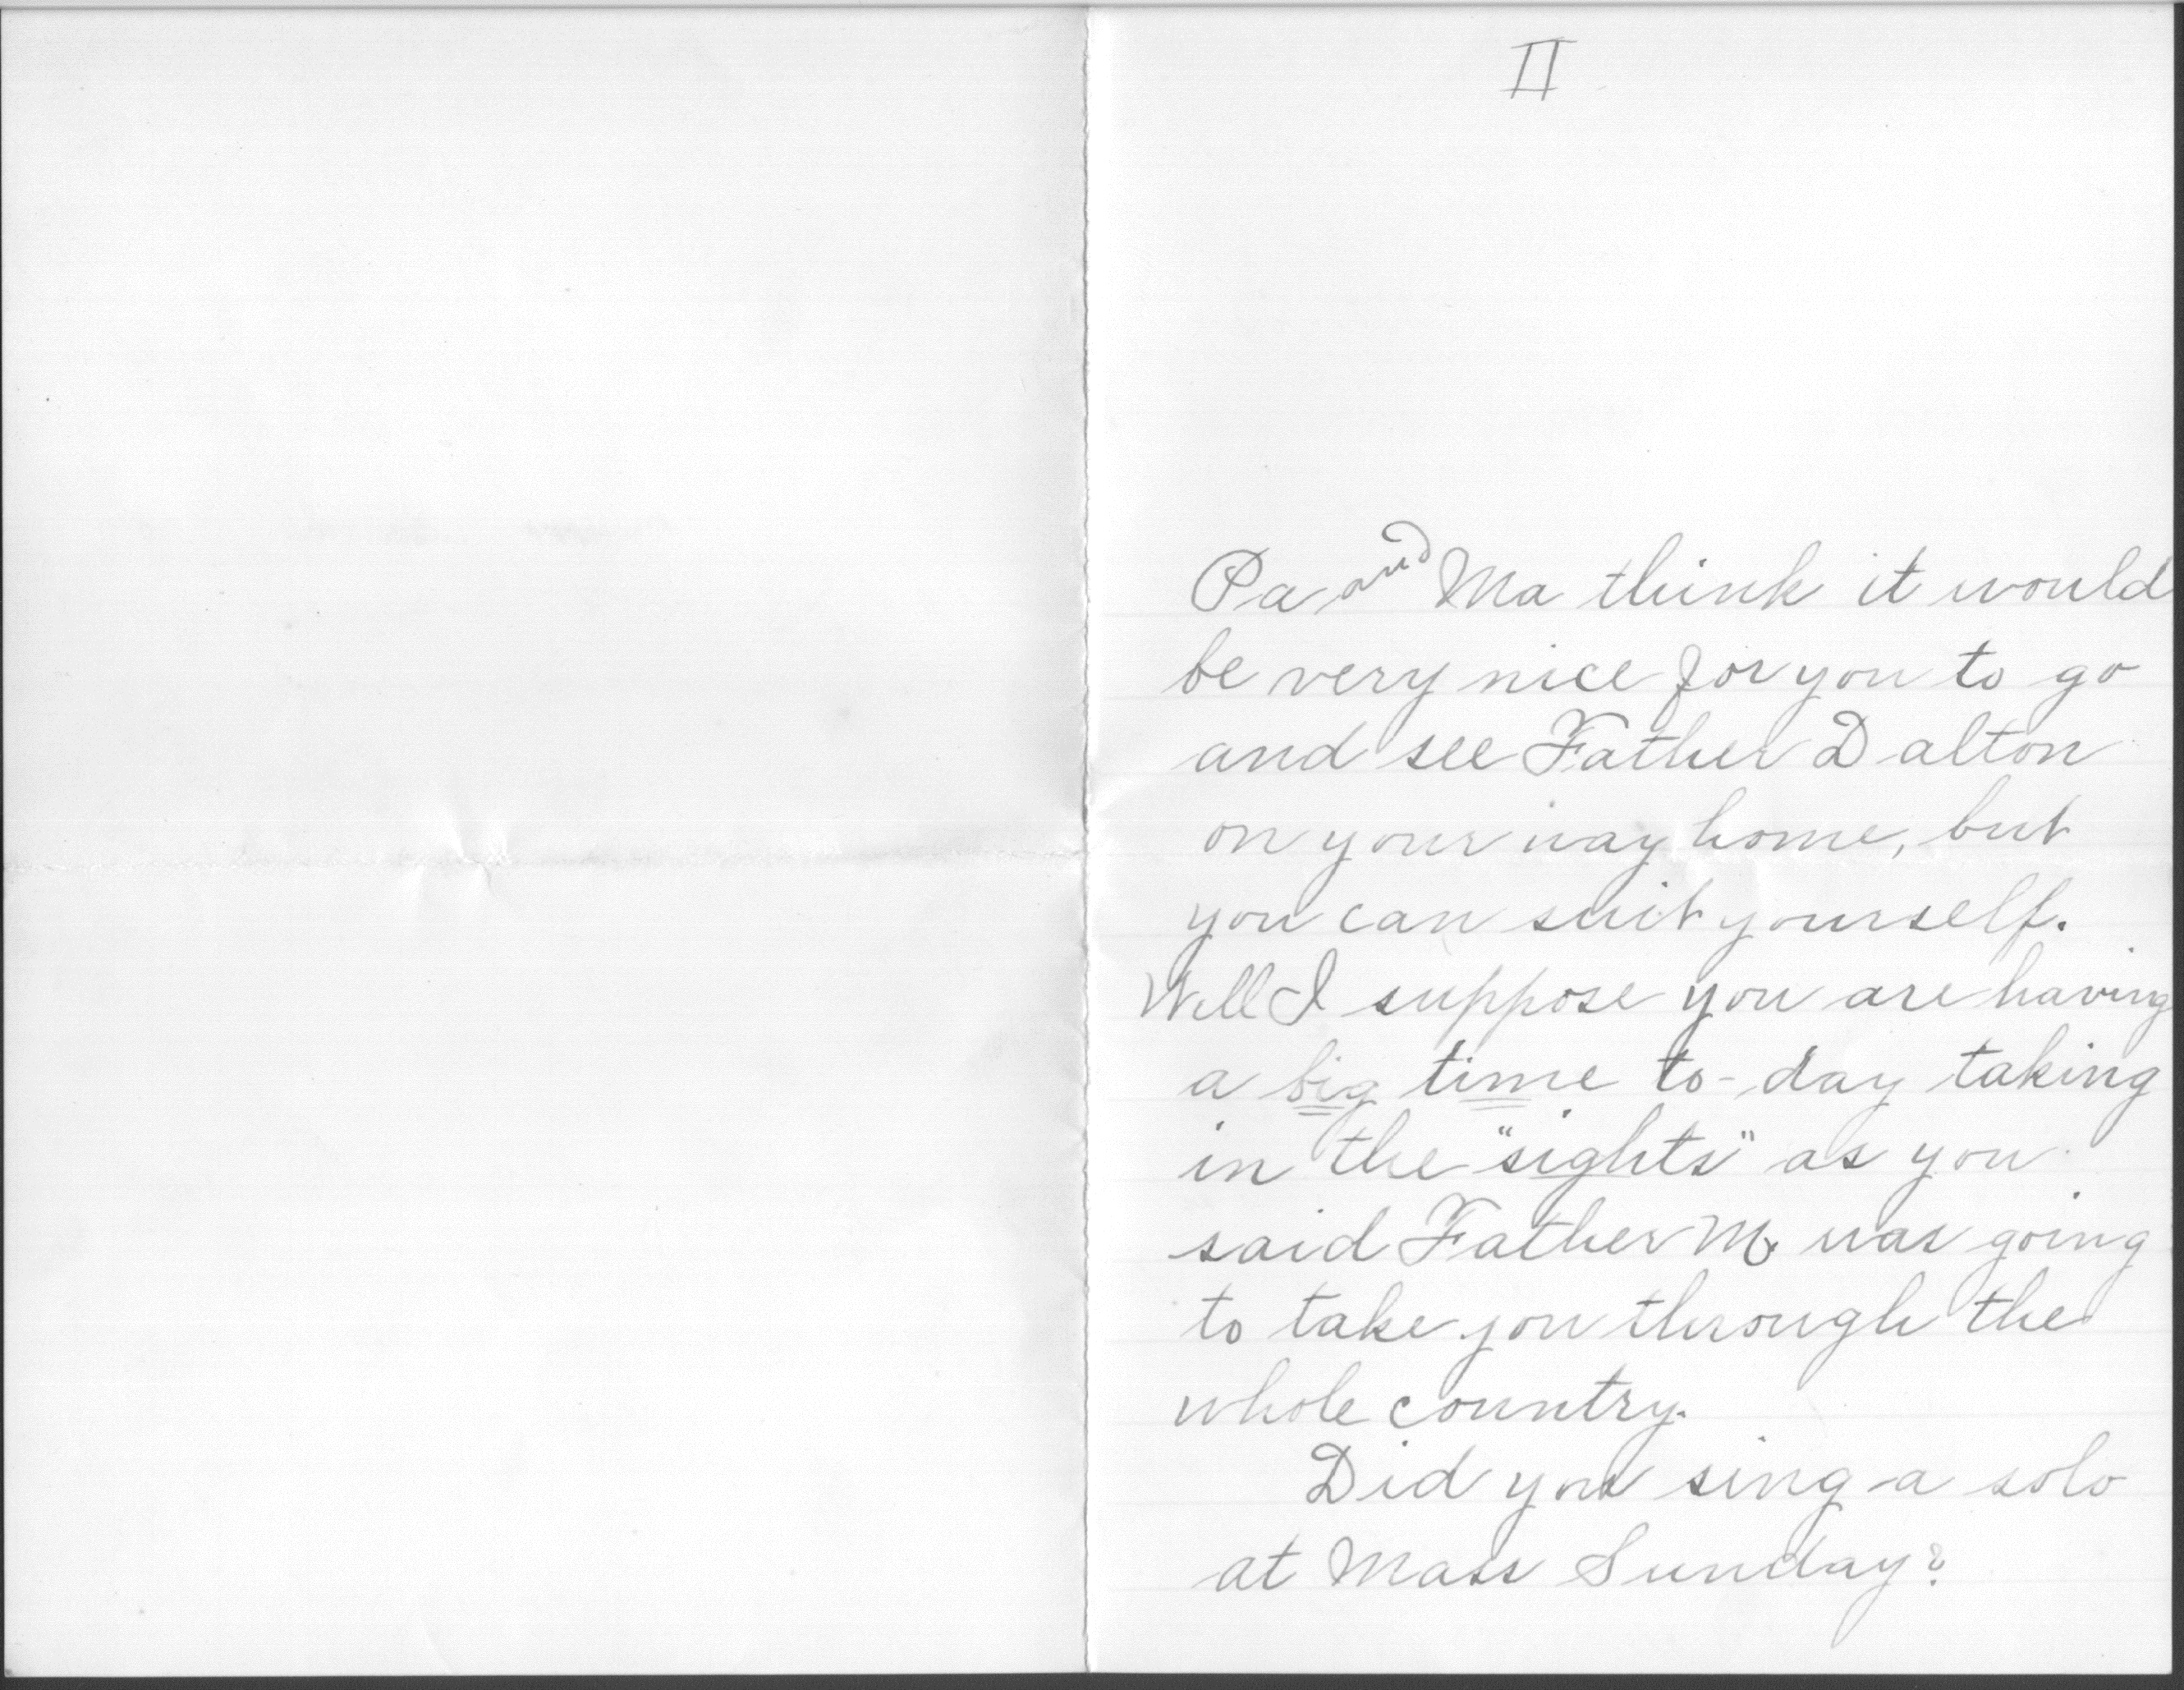 II
Pa and Ma think it would
be very nice for you to go
and see Father Dalton
on your way home, but
you can suit yourself.
Well I suppose you are having
a big time to-day taking
in the "sights" as you
said Father M. was going
to take you through the
whole country.
Did you sing a solo
at Mass Sunday?